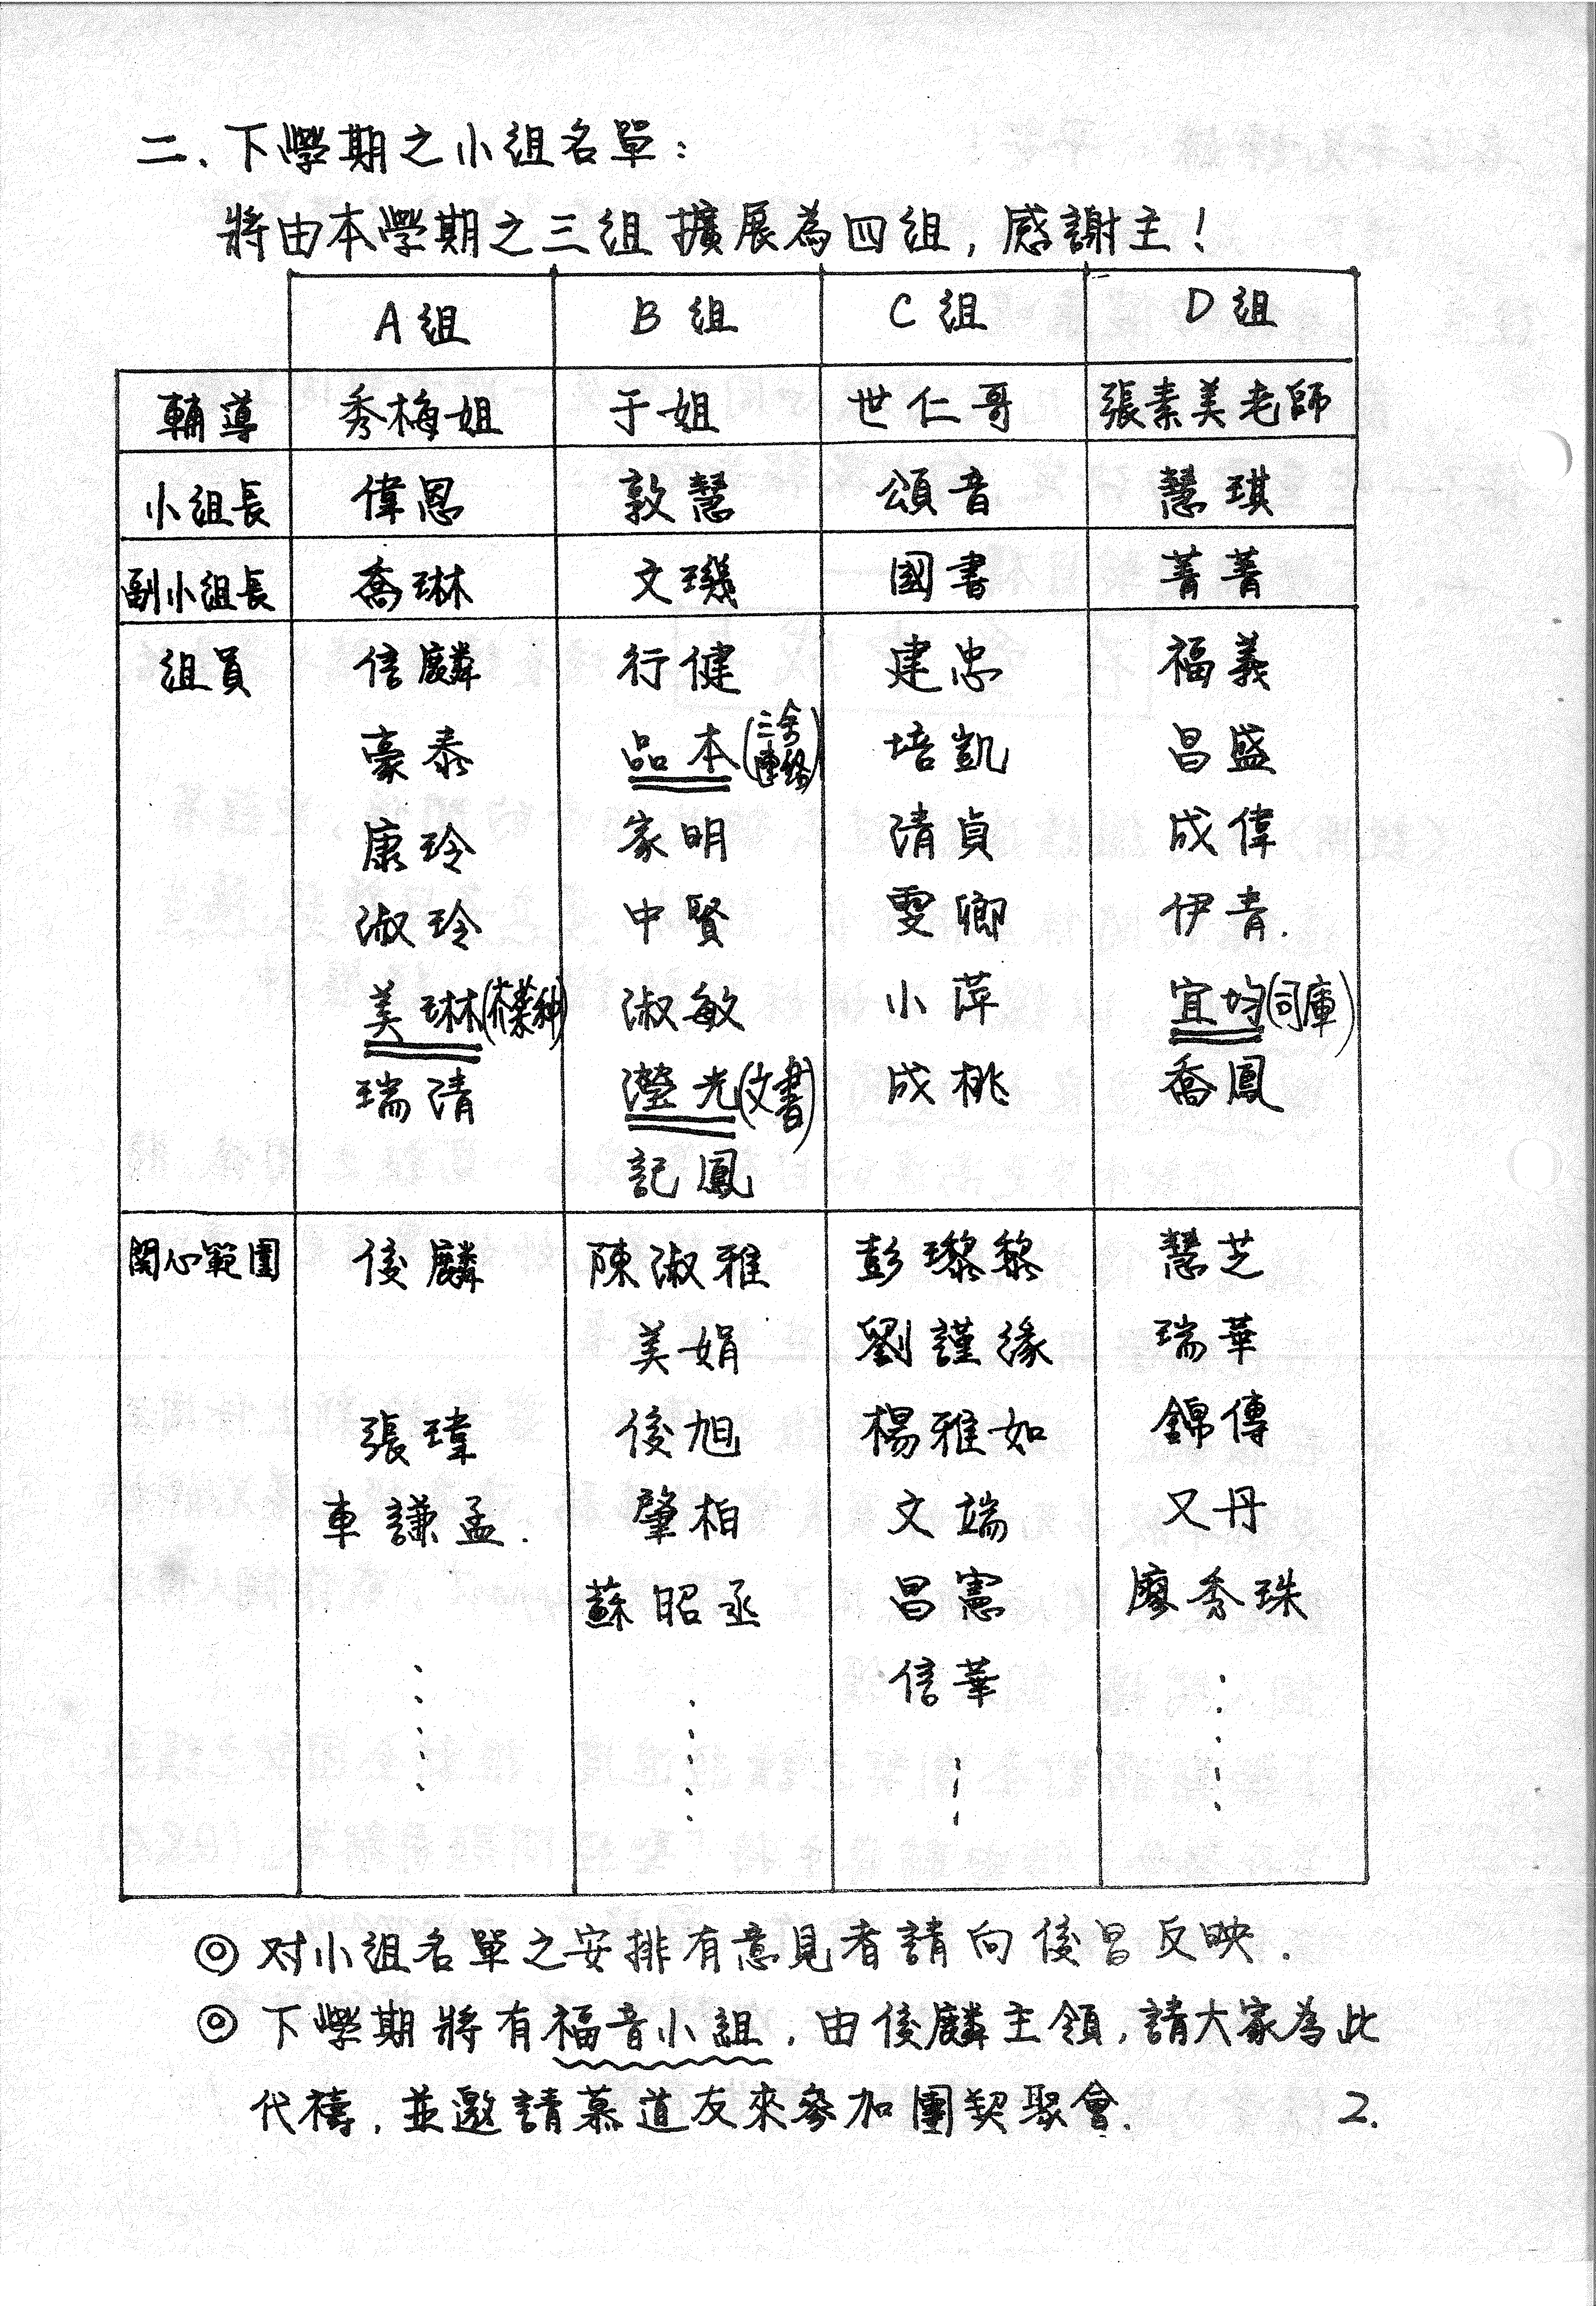 二、下學期之小組名單：
將由本學期之三組擴展為四組，感謝主！
A組 B組 C組 D組
輔導 秀梅姐 于姐 世仁哥 張素美老師
小組長 偉恩 敦慧 頌音 慧琪
副小組長 喬琳 文璣 國書 菁菁
組員 信麟 行健 建忠 福義
豪泰 品本(三舍連絡) 培凱 昌盛
康玲 家明 清貞 成偉
淑玲 中賢 雯卿 伊青.
美琳 淑敏 小萍 宜均(司庫)
瑞清 瀅光(文書) 成桃 喬鳳
記鳳
関心範圍 俊麟 陳淑雅 彭璨黎 慧芝
美娟 劉謹緣 瑞華
張瑋 俊旭 楊雅如 錦傳
車謙孟. 肇柏 文端 又丹
蘇昭丞 昌憲 廖秀珠
信華
◎ 对小組名單之安排有意見者請向俊昌反映.
◎ 下學期將有福音小組，由俊麟主領，請大家為此
代禱，並邀請慕道友來參加團契聚會. 2.